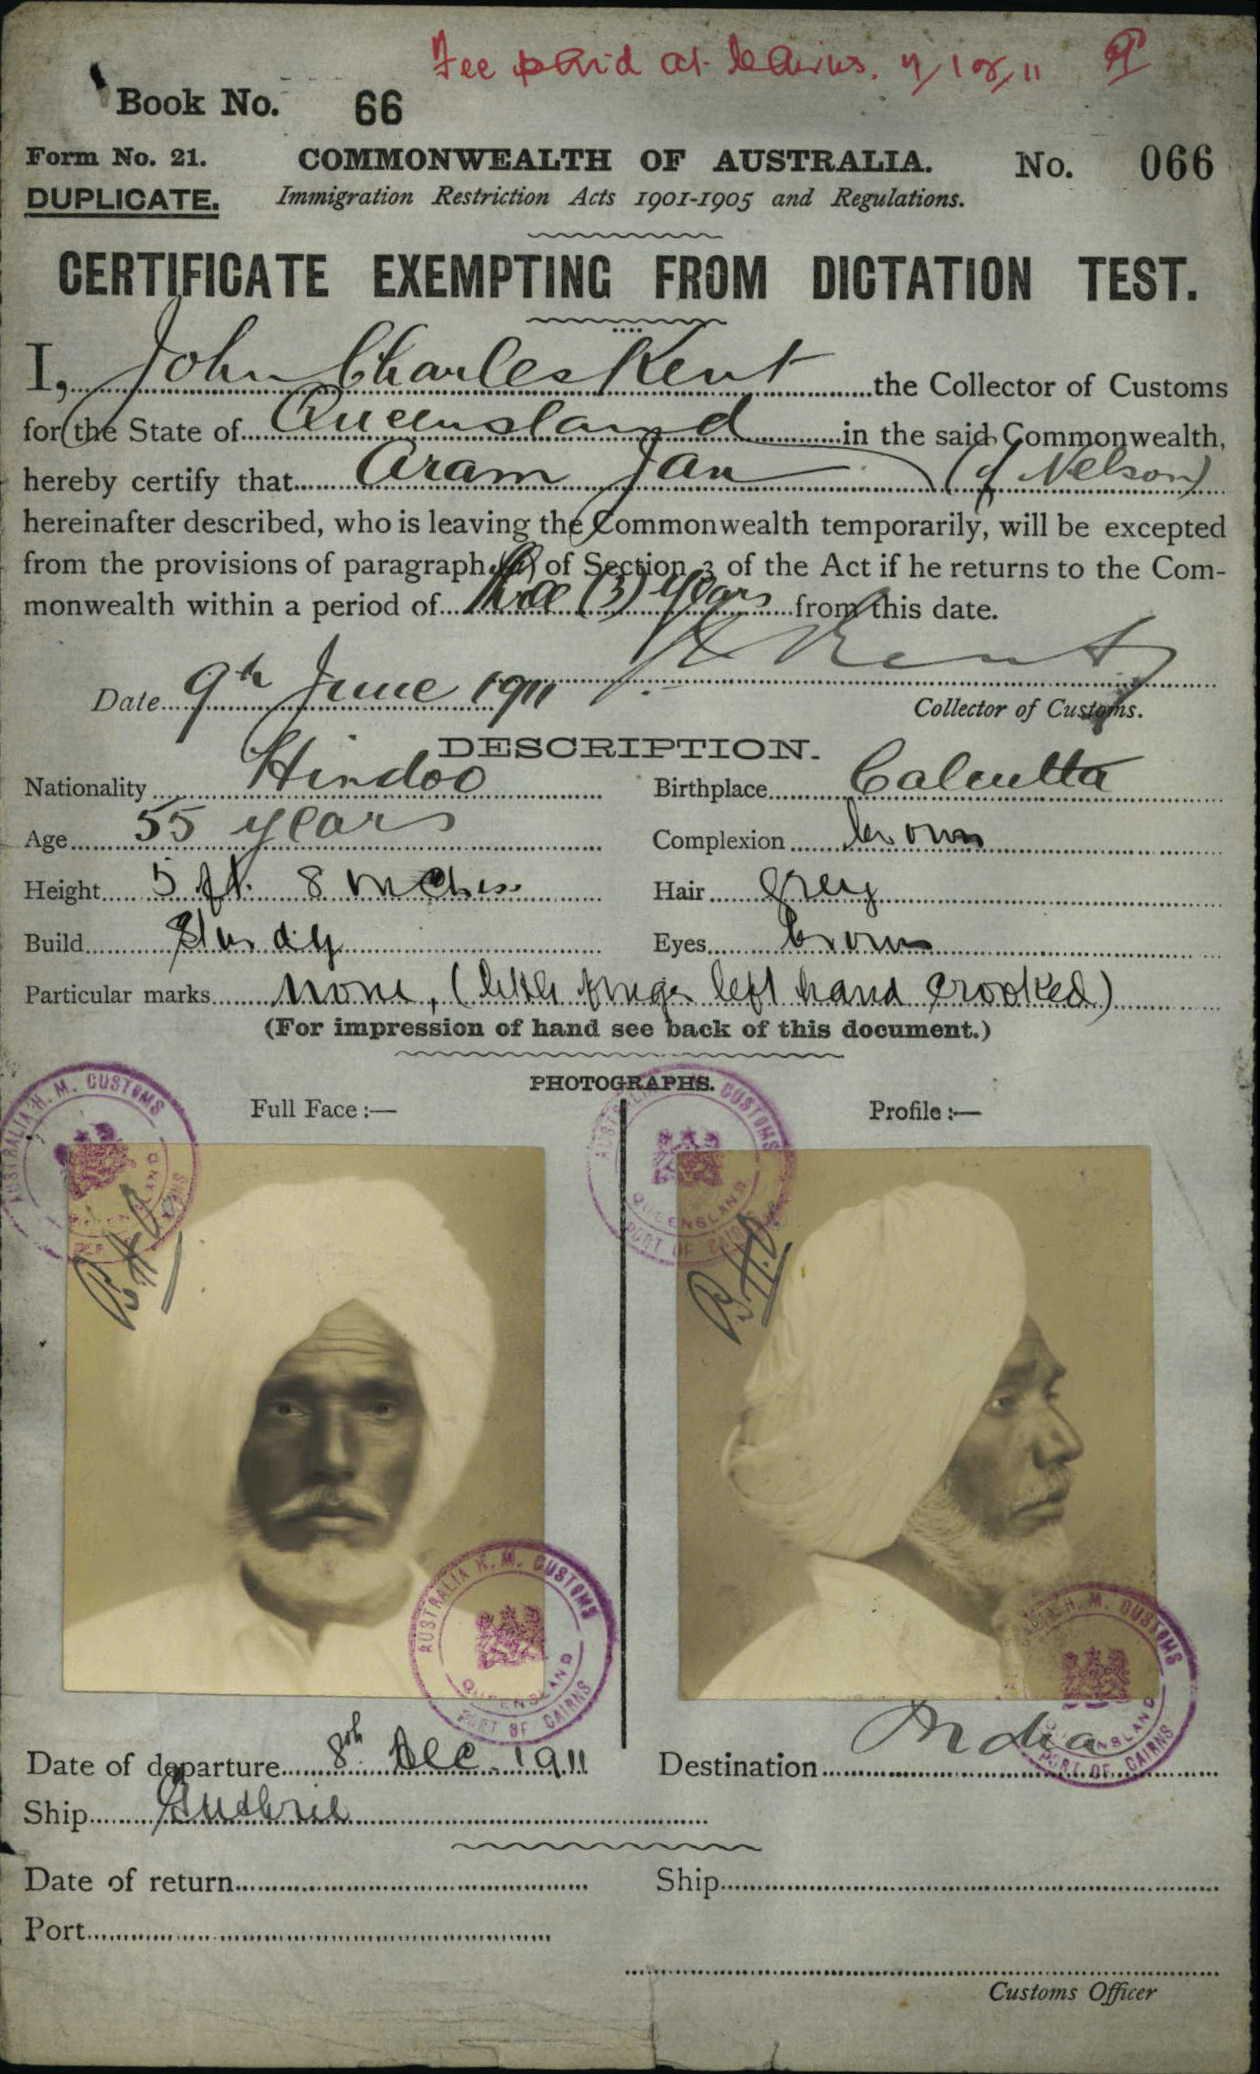 Fee paid at Cairns. 7/12/11
Book No. 66
Form No. 21. COMMONWEALTH OF AUSTRALIA. No. 066
DUPLICATE. Immigration Restriction Acts 1901-1905 and Regulations.
CERTIFICATE EXEMPTING FROM DICTATION TEST.
I, John Charles Kent the Collector of Customs
for the State of Queensland in the said Commonwealth,
hereby certify that Aram Jan (of Nelson)
hereinafter described, who is leaving the Commonwealth temporarily, will be excepted
from the provisions of paragraph (a) of Section 3 of the Act if he returns to the Com-
monwealth within a period of three (3) years from this date.
Kent
Date 9th June 1911 Collector of Customs.
DESCRIPTION.
Nationality Hindoo Birthplace Calcutta
Age 55 years Complexion brown
Height 5 ft. 8 inches Hair grey
Build Sturdy Eyes brown
Particular marks none, (little finger left hand crooked)
(For impression of hand see back of this document.)
PHOTOGRAPHS.
Full Face :— Profile :—
AUSTRALIA H. M. CUSTOMS QUEENSLAND PORT OF CAIRNS
AUSTRALIA H. M. CUSTOMS QUEENSLAND PORT OF CAIRNS
BHO
BHO
AUSTRALIA H. M. CUSTOMS QUEENSLAND PORT OF CAIRNS
AUSTRALIA H. M. CUSTOMS QUEENSLAND PORT OF CAIRNS
Date of departure 8th Dec. 1911 Destination India
Ship Guthrie
Date of return Ship
Port
Customs Officer